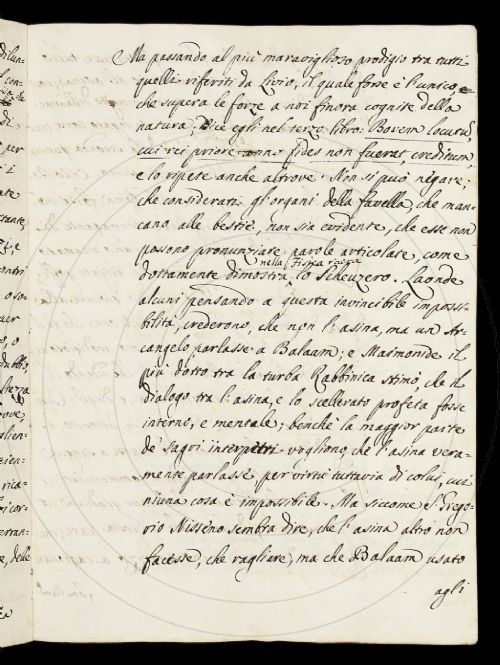 Ma passando al più maraviglioso prodigio tra tutti
quelli riferiti da Livio, il quale forse è l'unico,
che supera le forze a noi finora cognite della
natura. Dice egli nel terzo libro: Bovem locutã,
cui rei priore anno fides non fuerat, creditum,
e lo ripete anche altrove. Non si può negare,
che considerati gl'organi della favella, che man=
cano alle bestie, non sia evidente, che esse non
possono pronunziare parole articolate, come
nella Fisica sacra
dottamente dimostra lo Scheuzero. Laonde
alcuni pensando a questa invincibile impossi=
bilità, crederono, che non l'asina, ma un Ar=
cangelo parlasse a Balaam; e Maimonide il
più dotto tra la turba Rabbinica stimò, che il
dialogo tra l'asina, e lo scellerato profeta fosse
interno, e mentale; benchè la maggior parte
de' sagri interpetri vogliono, che l'asina vera=
mente parlasse per virtù tuttavia di colui, cui
niuna cosa è impossibile. Ma siccome S. Grego=
rio Nisseno sembra dire, che l'asina altro non
facesse, che ragliare, ma che Balaam usato
agli